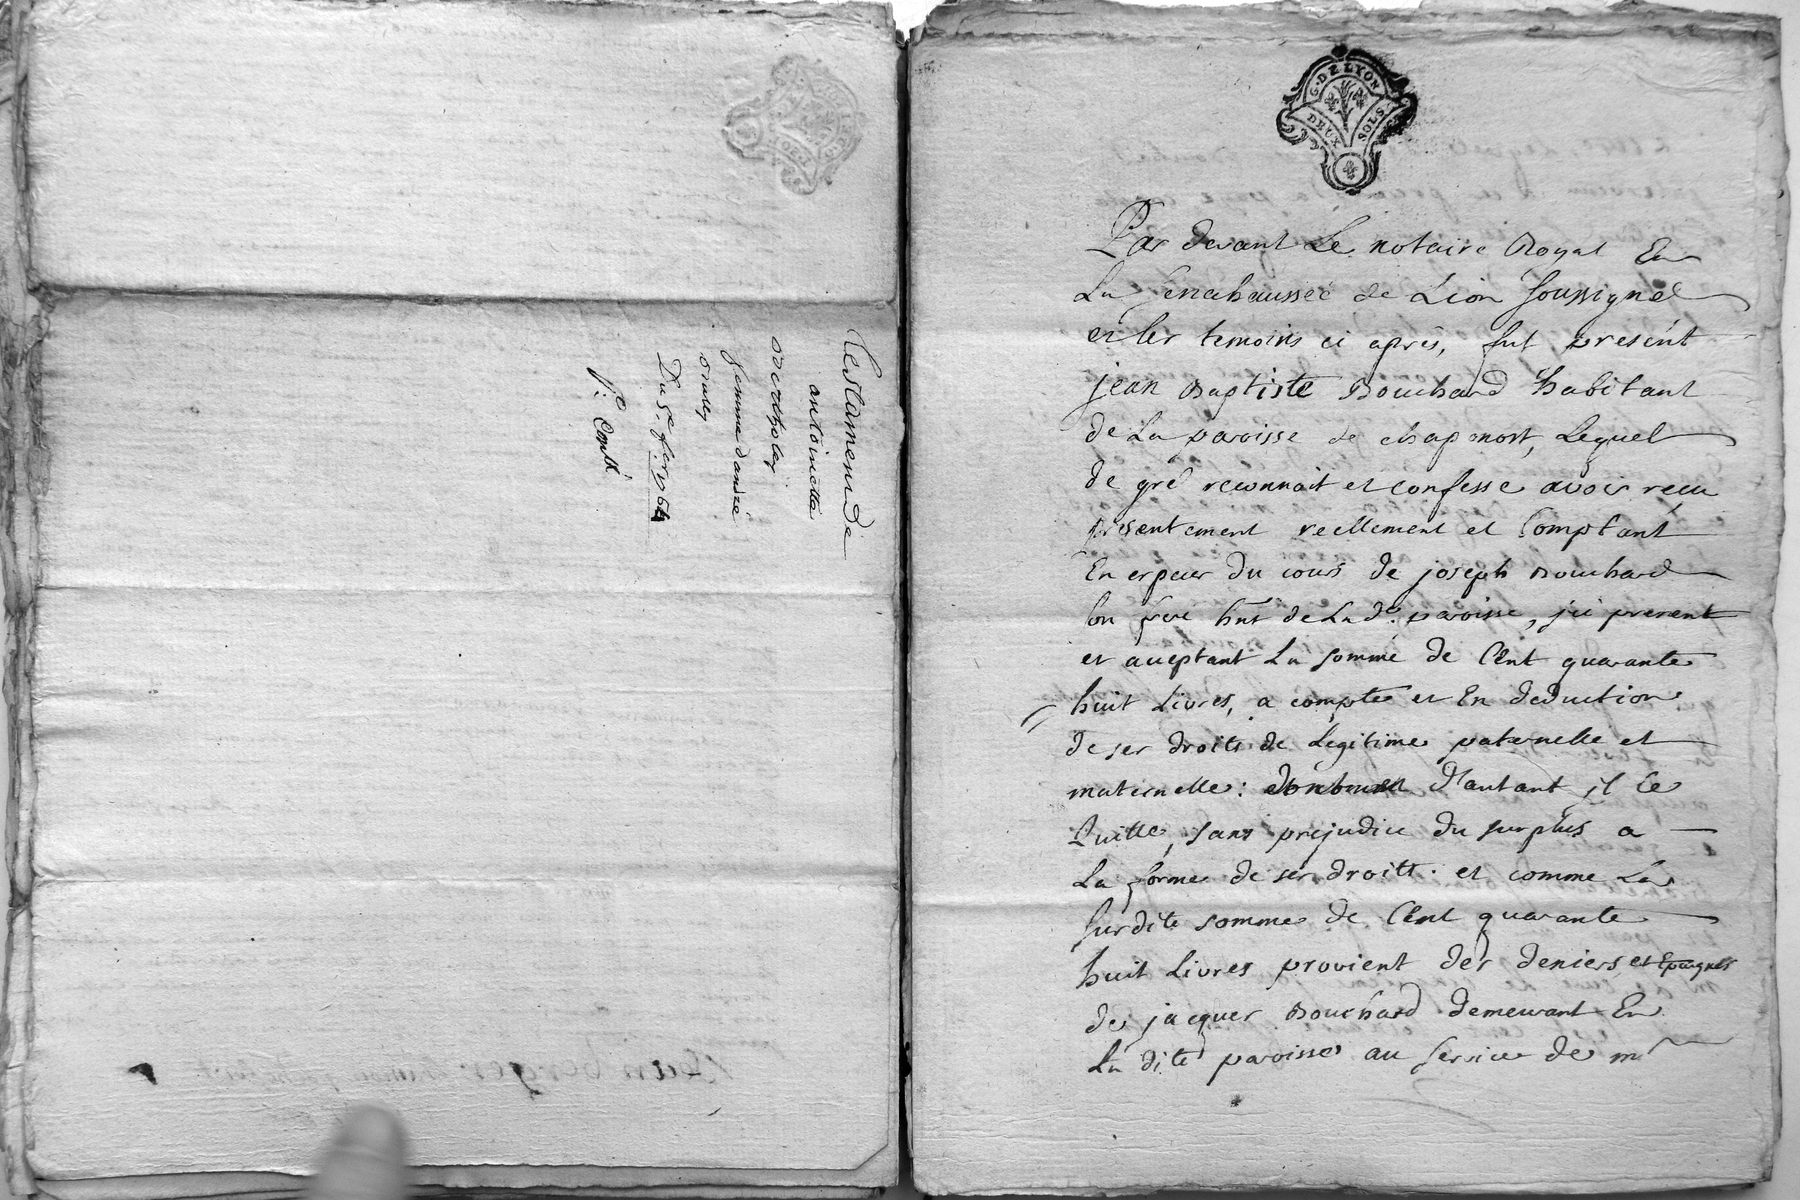 Testament de
antoinette
femme d'andré
Du 5e fer 1764
G. DE LYON
DEUX SOLS
Par devant Le notaire Royal En
La senechaussée de Lion soussigné
et les temoins ci après, fut present
jean Baptiste Bouchard habitant
de La paroisse de chaponost, Lequel
de gré reconnoit et confesse avoir reçu
presentement reellement et Comptant
En especes du cours de joseph Bouchard
son frere hnt de Lad. paroisse, ici present
et aceptant La somme de Cent quarante
huit Livres, a compte et En deduction
de ses droits de Legitime paternelle et
maternelle: d'autant il Le
Quitte, sans prejudice du surplus a
La forme de ses droits. et comme La
susdite somme de Cent quarante
huit Livres provient des deniers et Epargnes
de jacques Bouchard demeurant En
La dite paroisse au service de mr